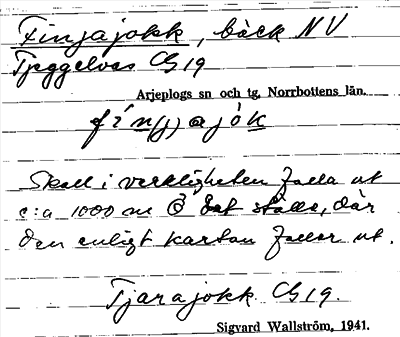 Finjajokk, bäck NV
Tjeggelvas CG 19
Arjeplogs sn och tg, Norrbottens län.
fi n(j) a j ò k
Skall i verkligheten falla ut
c:a 1000 m Ö det ställe, där
den enligt kartan faller ut.
Tjarajokk CG 19.
Sigvard Wallström, 1941.